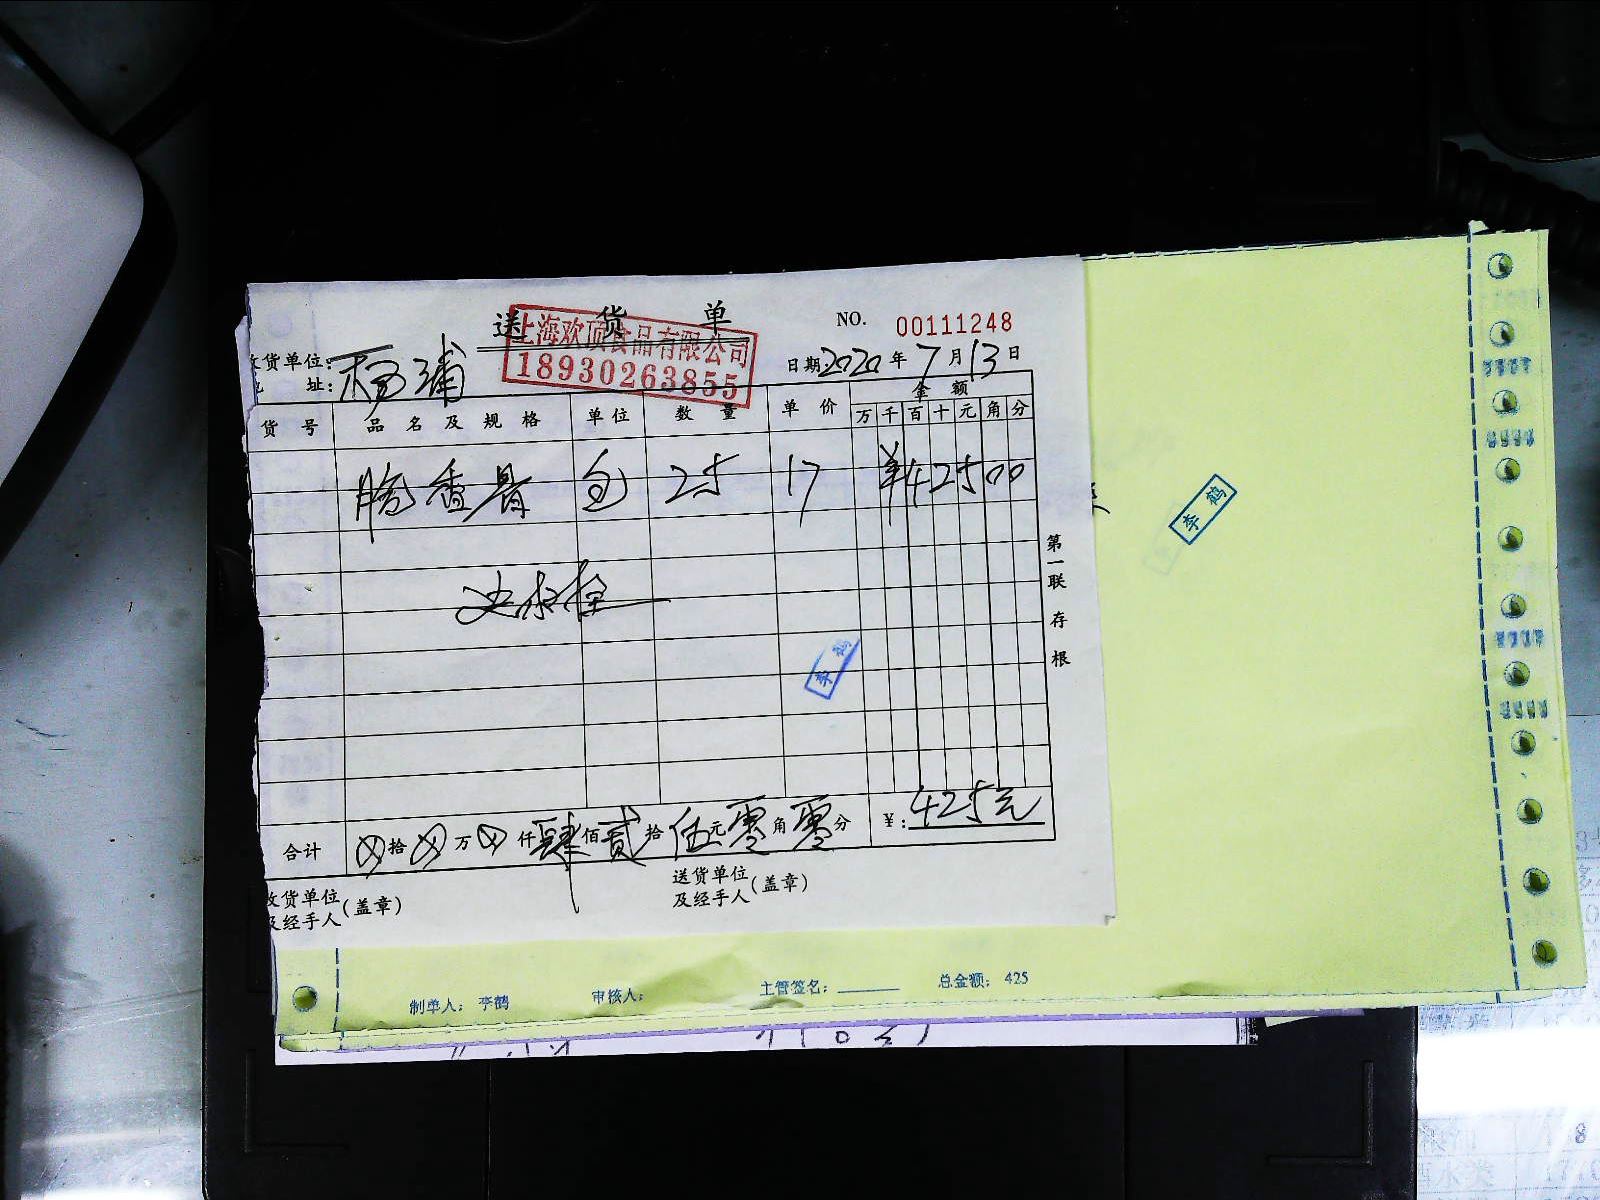 送 货 单
NO. 00111248
上海欢顶食品有限公司
18930263855
收货单位: 杨浦
地 址:
日期: 2020 年 7 月 13 日
货 号 品 名 及 规 格 单位 数 量 单 价 金 额
万 千 百 十 元 角 分
包 25 17 ¥42500
第一联 存根
李鹤
李鹤
合计 拾 万 仟 肆 佰 贰 拾 伍 元 零 角 零 分 ¥: 425元
收货单位
及经手人(盖章)
送货单位
及经手人(盖章)
制单人: 李鹤 审核人: 主管签名: 总金额: 425